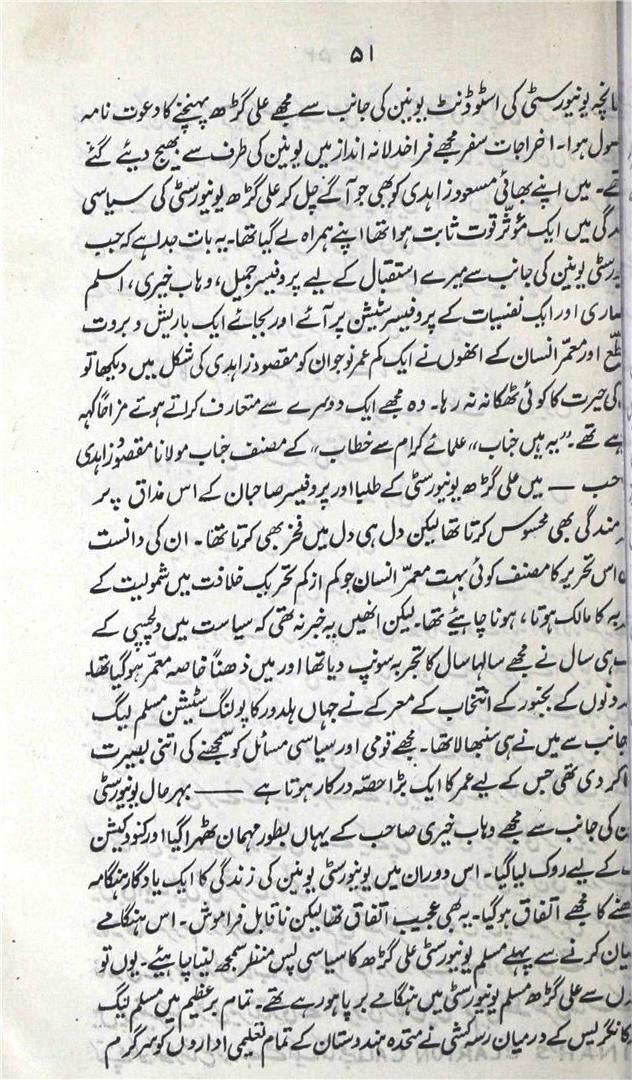 ۵۱
نانچہ یونیورسٹی کی اسٹوڈنٹ یونین کی جانب سے مجھے علی گڑھ پہنچنے کا دعوت نامہ
صول ہوا۔ اخراجات سفر مجھے فراخدلانہ انداز میں یونین کی طرف سے بھیج دیئے گئے
تھے۔ میں اپنے بھائی مسعود زاہدی کو بھی جو آگے چل کر علی گڑھ یونیورسٹی کی سیاسی
ندگی میں ایک مؤثر قوت ثابت ہوا تھا اپنے ہمراہ لے گیا تھا۔ یہ بات جدا ہے کہ جب
یورسٹی یونین کی جانب سے میرے استقبال کے لیے پروفیسر جمیل، وہاب خیری، اسلم
صاری اور ایک نفسیات کے پروفیسر سٹیشن پر آئے اور بجائے ایک باریش و بروت
طع اور معمر انسان کے انھوں نے ایک کم عمر نوجوان کو مقصود زاہدی کی شکل میں دیکھا تو
کی حیرت کا کوئی ٹھکانہ نہ رہا۔ وہ مجھے ایک دوسرے سے متعارف کراتے ہوتے مزاحاً کہہ
ہے تھے۔ ”یہ ہیں جناب ”علمائے کرام سے خطاب“ کے مصنف جناب مولانا مقصود زاہدی
احب — میں علی گڑھ یونیورسٹی کے طلبا اور پروفیسر صاحبان کے اس مذاق پر
رمندگی بھی محسوس کرتا تھا لیکن دل ہی دل میں فخر بھی کرتا تھا۔ ان کی دانست
ں اس تحریر کا مصنف کوئی بہت معمر انسان جو کم از کم تحریک خلافت میں شمولیت کے
ربہ کا مالک ہوتا، ہونا چاہیئے تھا۔ لیکن انھیں یہ خبر نہ تھی کہ سیاست میں دلچسپی کے
ہی سال نے مجھے سالہا سال کا تجربہ سونپ دیا تھا اور میں ذھناً خاصہ معمر ہوگیا تھا۔
دنوں کے بجنور کے انتخاب کے معرکے نے جہاں ہلدور کا پولنگ سٹیشن مسلم لیگ
جانب سے میں نے ہی سنبھالا تھا۔ مجھے قومی اور سیاسی مسائل کو سمجھنے کی اتنی بصیرت
ا کر دی تھی جس کے لیے عمر کا ایک بڑا حصّہ درکار ہوتا ہے —— بہر حال یونیورسٹی
ن کی جانب سے مجھے وہاب خیری صاحب کے یہاں بطور مہمان ٹھہرا گیا اور کنووکیشن
کے لیے روک لیا گیا۔ اس دوران میں یونیورسٹی یونین کی زندگی کا ایک یادگار ہنگامہ
ھنے کا مجھے اتفاق ہوگیا۔ یہ بھی عجیب اتفاق تھا لیکن ناقابل فراموش۔ اس ہنگامے
یان کرنے سے پہلے مسلم یونیورسٹی علی گڑھ کا سیاسی پس منظر سمجھ لینا چاہیئے۔ یوں تو
ں سے علی گڑھ مسلم یونیورسٹی میں ہنگامے برپا ہو رہے تھے۔ تمام برعظیم میں مسلم لیگ
کانگریس کے درمیان رسہ کشی نے متحدہ ہندوستان کے تمام تعلیمی اداروں کو سرگرم